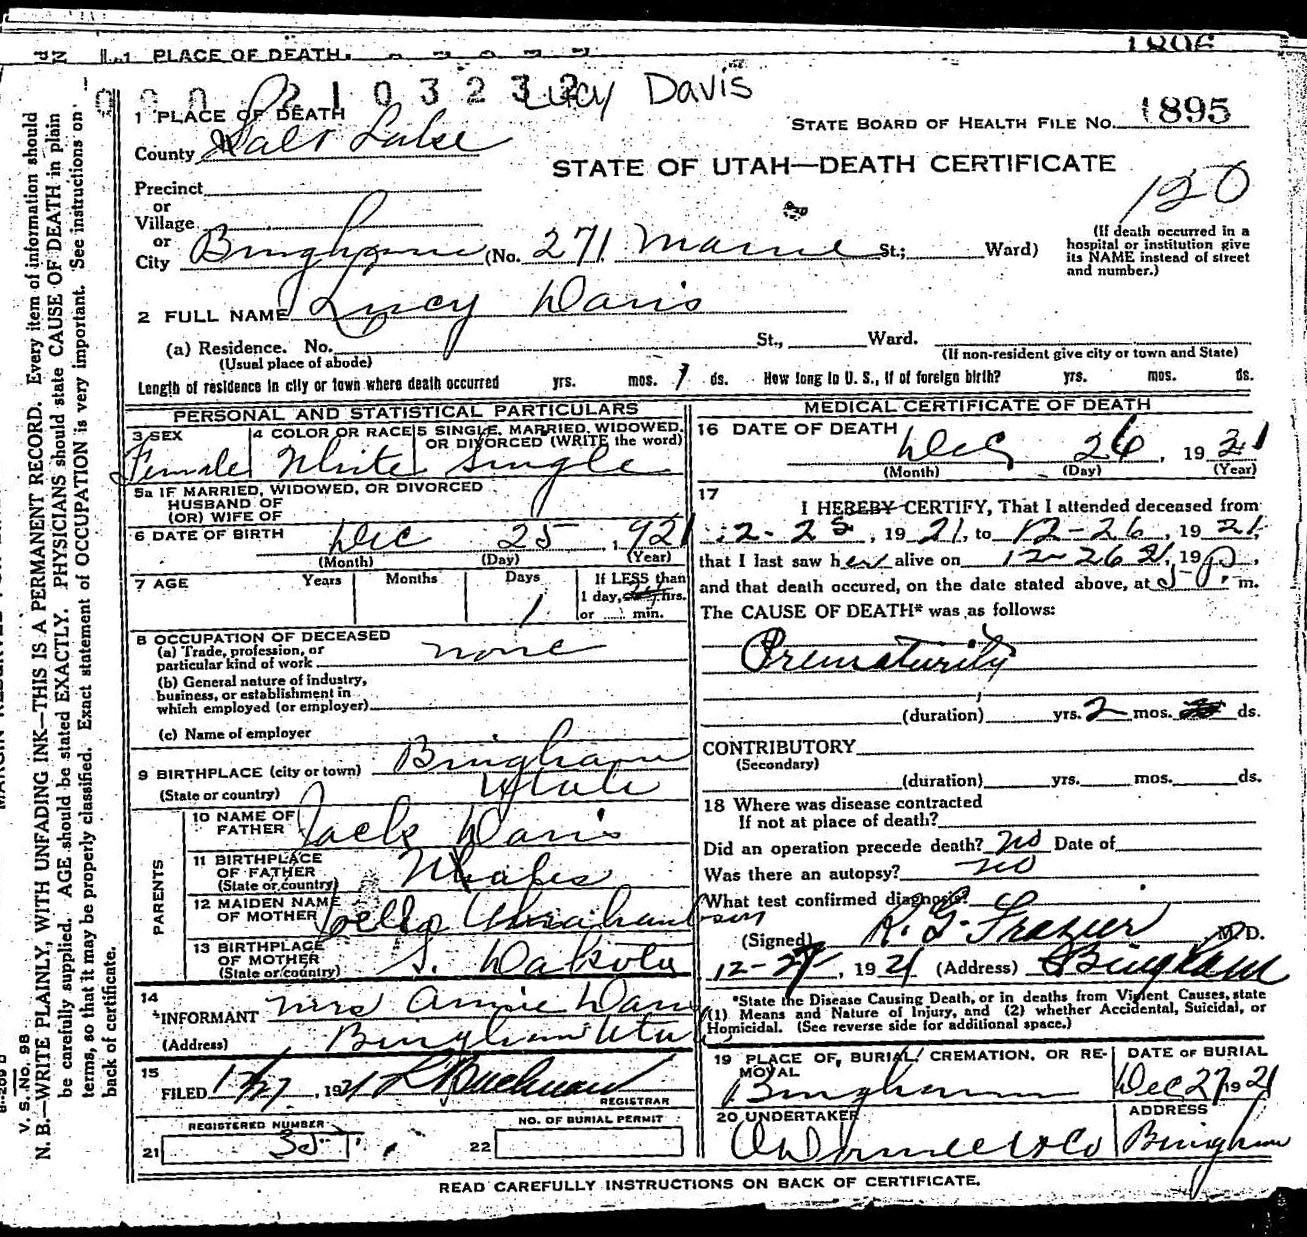 1 PLACE OF DEATH.
1896
Lucy Davis
1 PLACE OF DEATH
STATE BOARD OF HEALTH FILE NO. 1895
County Salt Lake
STATE OF UTAH—DEATH CERTIFICATE
Precinct
or
Village
or
City Bingham (No. 271 Maine St.; Ward)
120
(If death occurred in a
hospital or institution give
its NAME instead of street
and number.)
2 FULL NAME Lucy Davis
(a) Residence. No. St., Ward.
(Usual place of abode) (If non-resident give city or town and State)
Length of residence in city or town where death occurred yrs. mos. 1 ds. How long in U. S., if of foreign birth? yrs. mos. ds.
PERSONAL AND STATISTICAL PARTICULARS
3 SEX 4 COLOR OR RACE 5 SINGLE, MARRIED, WIDOWED,
OR DIVORCED (WRITE the word)
Female White Single
5a IF MARRIED, WIDOWED, OR DIVORCED
HUSBAND OF
(OR) WIFE OF
6 DATE OF BIRTH Dec 25, 1921
(Month) (Day) (Year)
7 AGE Years Months Days If LESS than
1 day, hrs.
1 or min.
8 OCCUPATION OF DECEASED
(a) Trade, profession, or
particular kind of work none
(b) General nature of industry,
business, or establishment in
which employed (or employer)
(c) Name of employer
9 BIRTHPLACE (city or town) Bingham
(State or country) Utah
PARENTS
10 NAME OF
FATHER Jack Davis
11 BIRTHPLACE
OF FATHER
(State or country) Whales
12 MAIDEN NAME
OF MOTHER Bella Abrahamson
13 BIRTHPLACE
OF MOTHER
(State or country) S. Dakota
14
INFORMANT Mrs Annie Davis
(Address) Bingham Utah
15
FILED 12/27, 1921
REGISTRAR
REGISTERED NUMBER NO. OF BURIAL PERMIT
21 22
MEDICAL CERTIFICATE OF DEATH
16 DATE OF DEATH Dec 26, 1921
(Month) (Day) (Year)
17
I HEREBY CERTIFY, That I attended deceased from
12-25, 1921, to 12-26, 1921,
that I last saw her alive on 12-26 21, 19
and that death occured, on the date stated above, at 5 P. m.
The CAUSE OF DEATH* was as follows:
Prematurity
(duration) yrs. 2 mos. ds.
CONTRIBUTORY
(Secondary)
(duration) yrs. mos. ds.
18 Where was disease contracted
If not at place of death?
Did an operation precede death? no Date of
Was there an autopsy? no
What test confirmed diagnosis?
(Signed) R. G. Frazier M. D.
12-27, 1921 (Address) Bingham
*State the Disease Causing Death, or in deaths from Violent Causes, state
(1) Means and Nature of Injury, and (2) whether Accidental, Suicidal, or
Homicidal. (See reverse side for additional space.)
19 PLACE OF, BURIAL, CREMATION, OR RE- DATE OF BURIAL
MOVAL
Bingham Dec 27 1921
20 UNDERTAKER ADDRESS
O'Donnell & Co Bingham
READ CAREFULLY INSTRUCTIONS ON BACK OF CERTIFICATE.
V. S. No. 98
N. B.—WRITE PLAINLY, WITH UNFADING INK—THIS IS A PERMANENT RECORD. Every item of information should
be carefully supplied. AGE should be stated EXACTLY. PHYSICIANS should state CAUSE OF DEATH in plain
terms, so that it may be properly classified. Exact statement of OCCUPATION is very important. See instructions on
back of certificate.